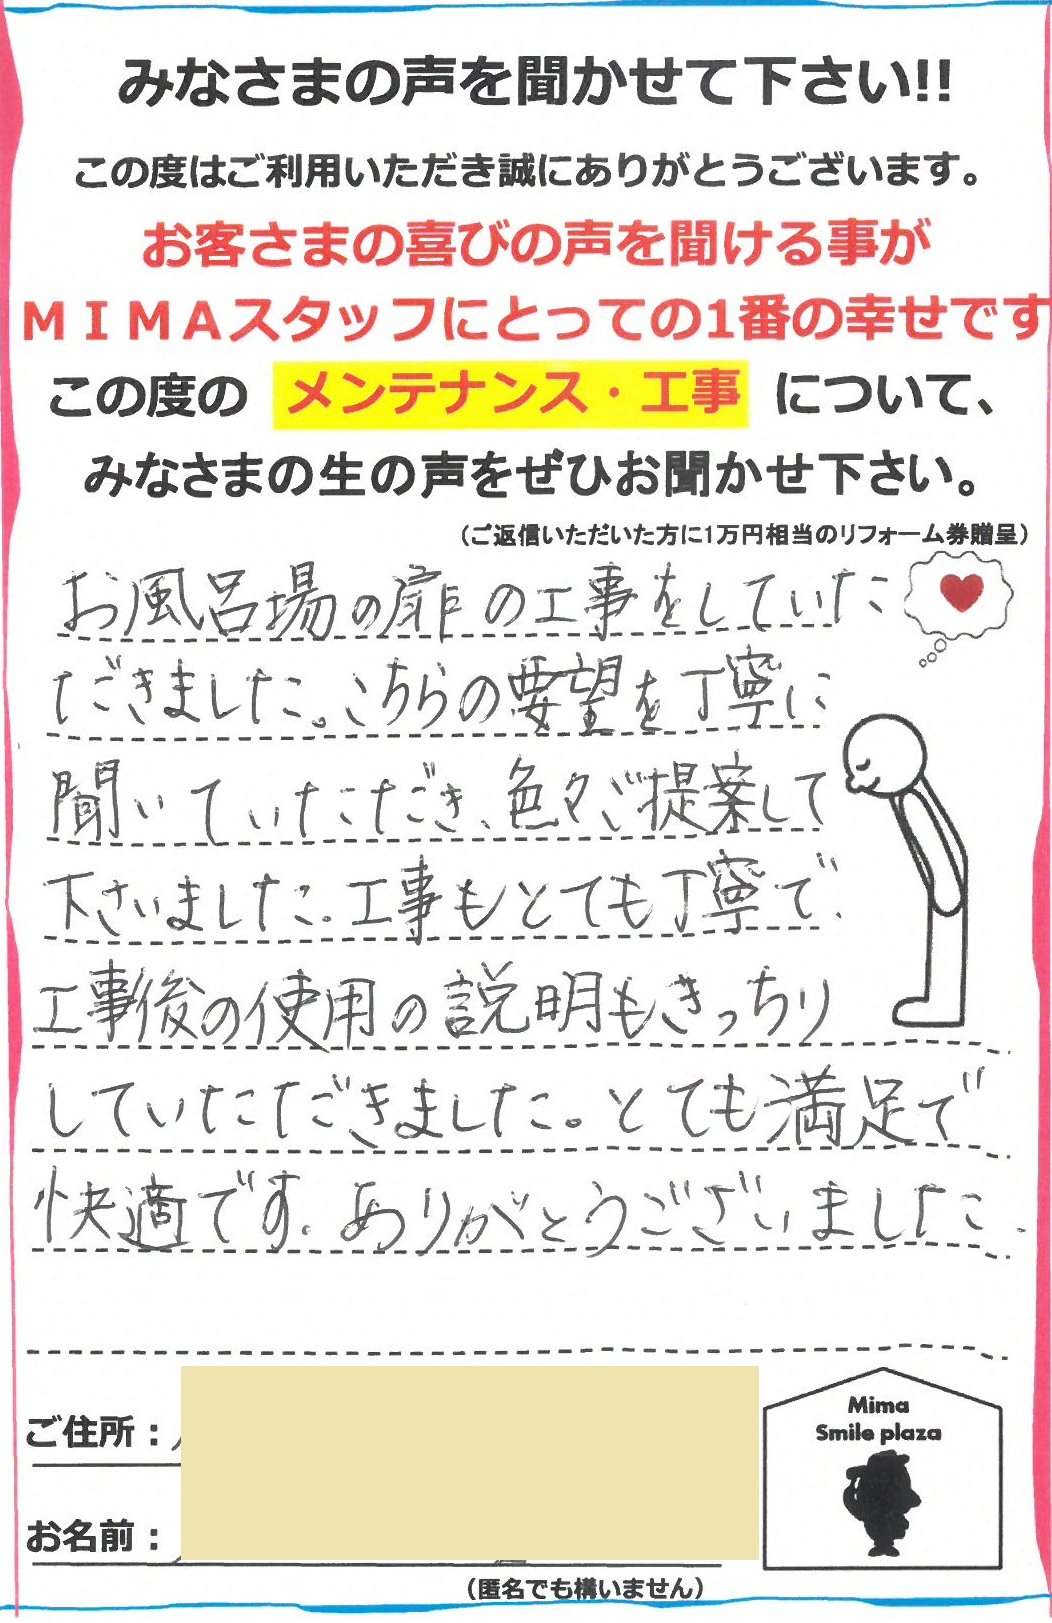 みなさまの声を聞かせて下さい!!
この度はご利用いただき誠にありがとうございます。
お客さまの喜びの声を聞ける事が
ＭＩＭＡスタッフにとっての1番の幸せです
この度の メンテナンス・工事 について、
みなさまの生の声をぜひお聞かせ下さい。
（ご返信いただいた方に1万円相当のリフォーム券贈呈）
お風呂場の扉の工事をしていた
だきました。こちらの要望を丁寧に
聞いていただき、色々ご提案して
下さいました。工事もとても丁寧で、
工事後の使用の説明もきっちり
していただきました。とても満足で
快適です。ありがとうございました。
ご住所：
お名前：
（匿名でも構いません）
Mima
Smile plaza